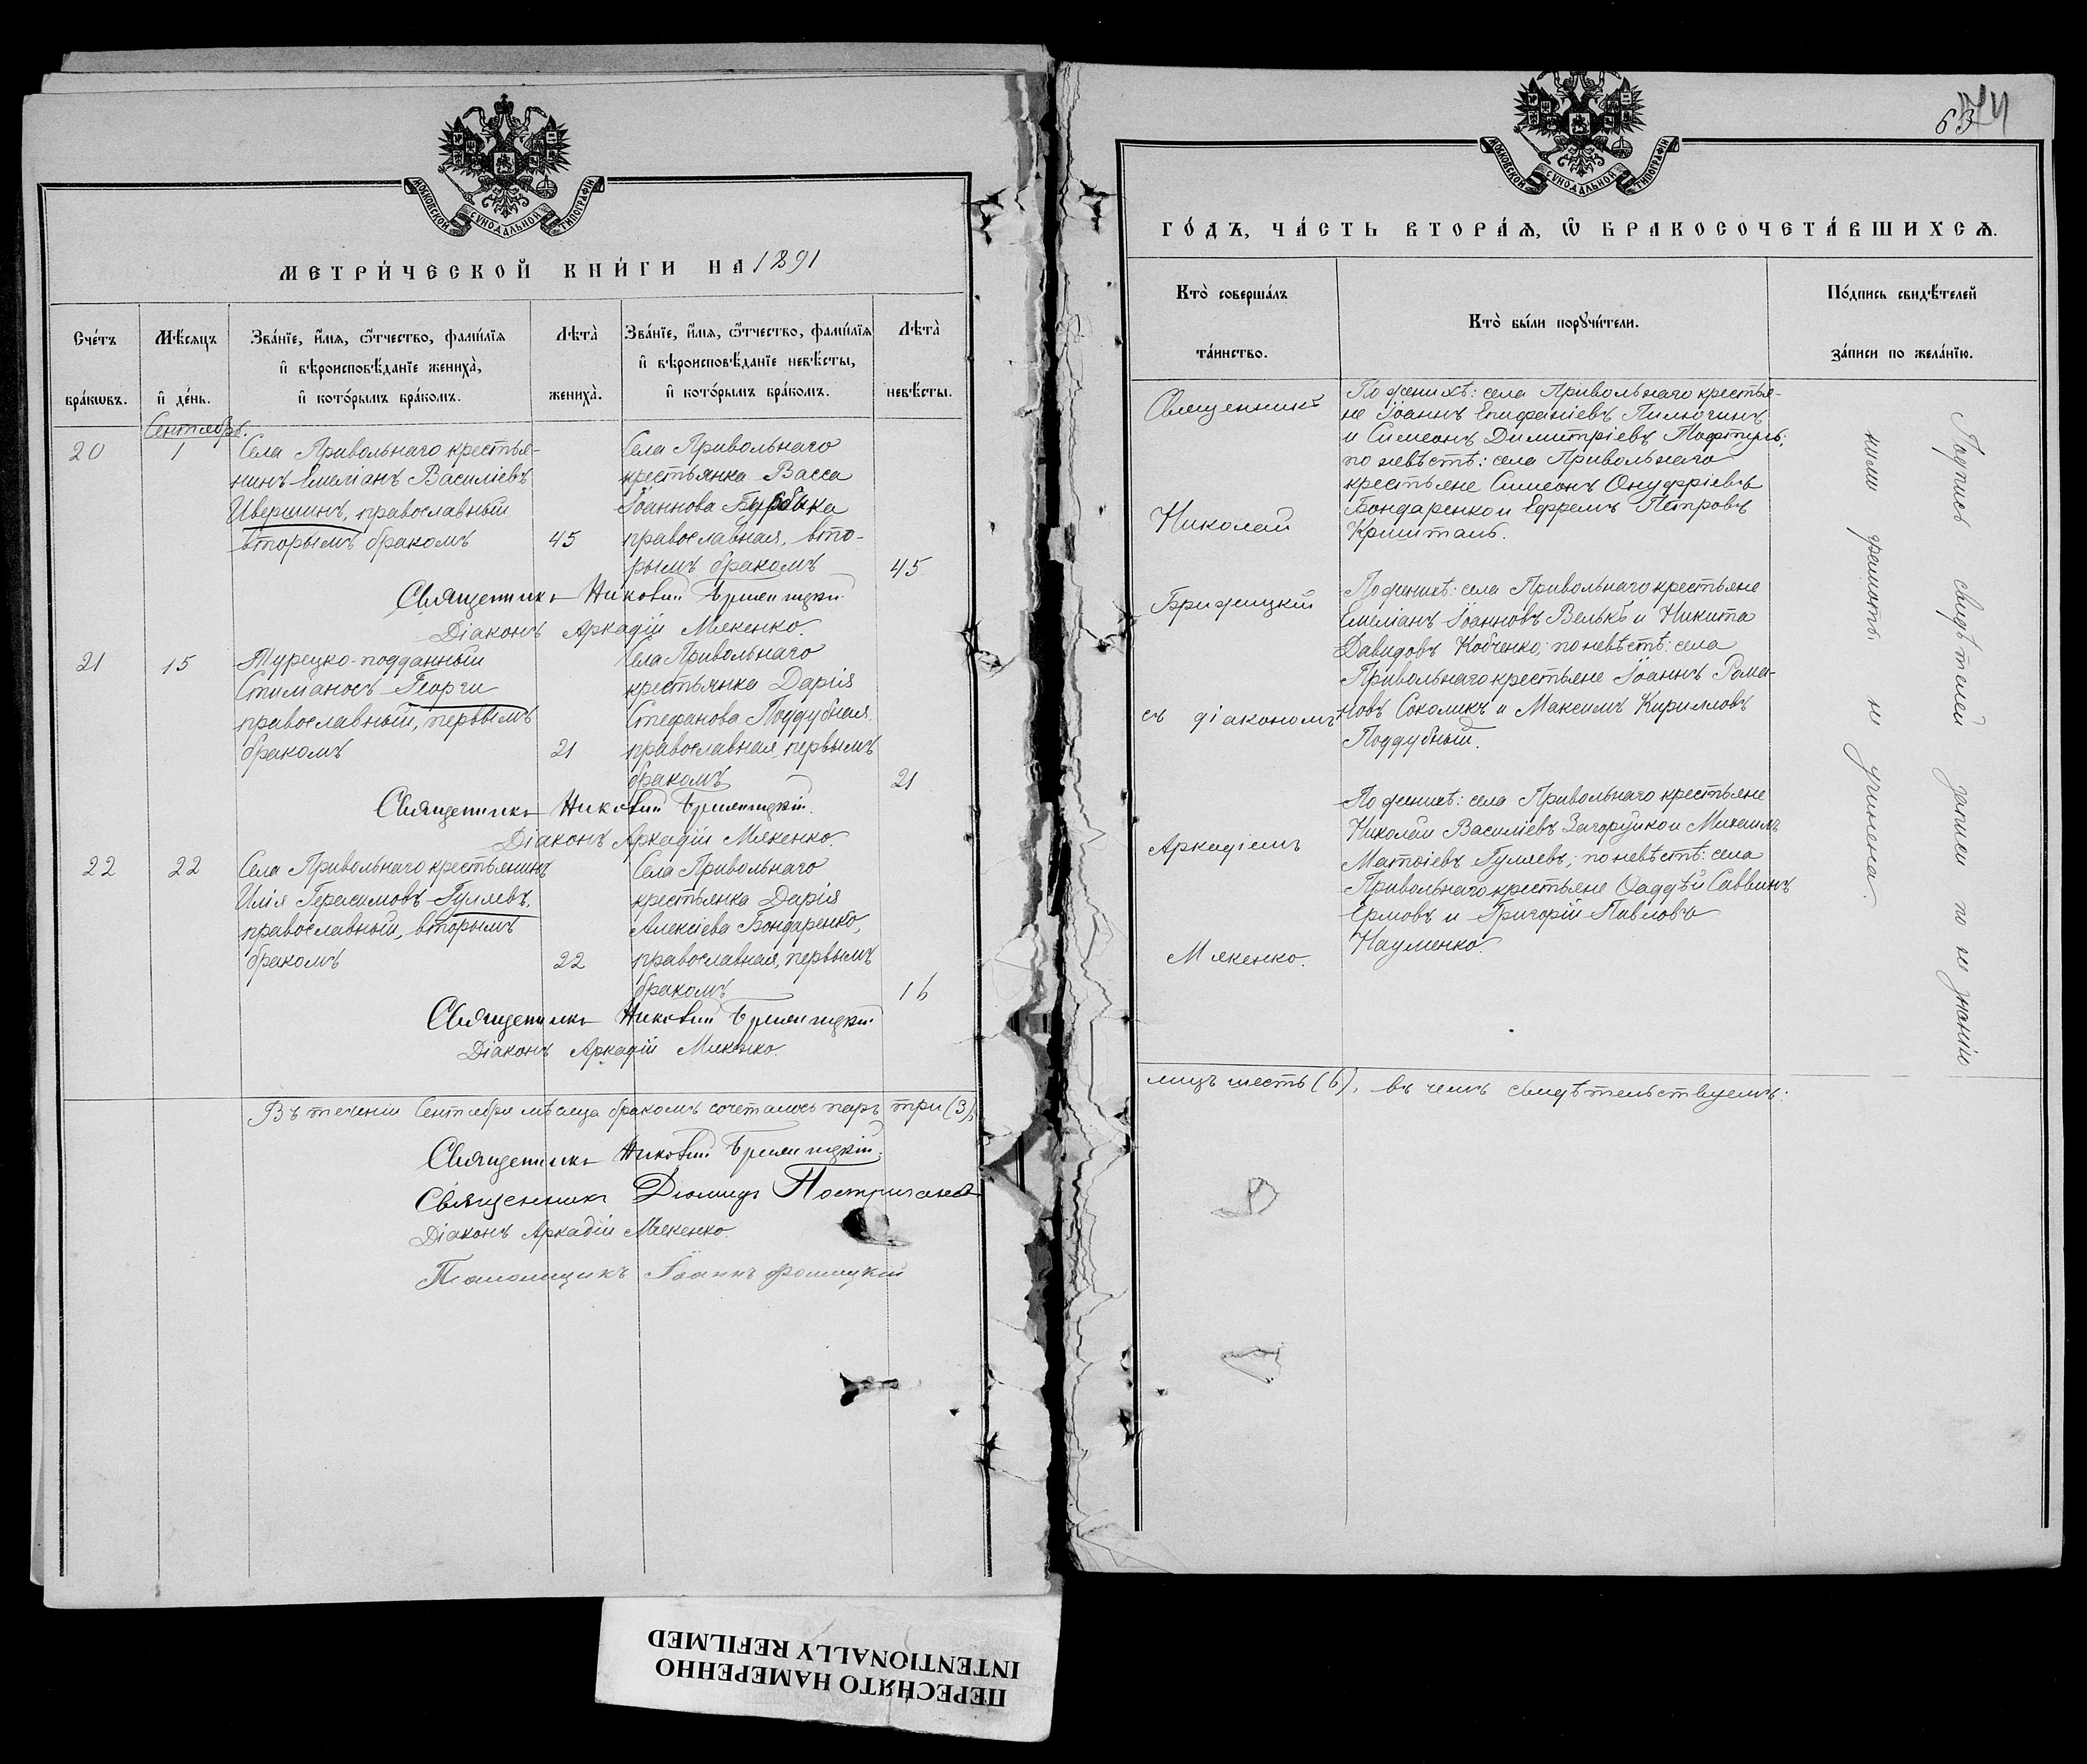 МОСКОВСКОЙ СѴНОДАЛЬНОЙ ТИПОГРАФІИ
МЕТРИ́ЧЕСКОЙ КНИ́ГИ НА 1891
Сче́тъ бра́кѡвъ.
Мѣ́сяцъ и҆ де́нь.
Зва́нїе, и҆́мя, ѻ҆́тчество, фами́лїя
и҆ вѣроисповѣ́данїе жениха̀,
и҆ кото́рымъ бра́комъ.
Лѣта̀ жениха̀.
Зва́нїе, и҆́мя, ѻ҆́тчество, фами́лїя
и҆ вѣроисповѣ́данїе невѣ́сты,
и҆ кото́рымъ бра́комъ.
Лѣта̀ невѣ́сты.
Сентябрь.
20
1
Села Привольнаго крестья-
нинъ Емеліанъ Василіевъ
Ивершинъ, православный
вторымъ бракомъ
45
Села Привольнаго
крестьянка Васса
Іоаннова
православная, вто-
рымъ бракомъ
45
Священникъ Николай Бриженцкій
Діаконъ Аркадій Мякенко.
21
15
Турецко-подданный
Стиманосъ Георги
православный, первымъ
бракомъ
21
Села Привольнаго
крестьянка Дарія
Стефанова Поддубная,
православная, первымъ
бракомъ
21
Священникъ Николай
Діаконъ Аркадій Мякенко.
22
22
Села Привольнаго крестьянинъ
Илія Герасимовъ Гуляевъ,
православный, вторымъ
бракомъ
22
Села Привольнаго
крестьянка Дарія
Алексіева Бондаренко,
православная, первымъ
бракомъ
16
Священникъ Николай
Діаконъ Аркадій Мякенко.
Въ теченіи Сентября мѣсяца бракомъ сочеталось паръ три (3),
Священникъ Николай
Священникъ Діомидъ
Діаконъ Аркадій Мякенко.
Псаломщикъ Іоаннъ
63
74
МОСКОВСКОЙ СѴНОДАЛЬНОЙ ТИПОГРАФІИ
ГО́ДЪ, ЧА́СТЬ ВТОРА́Я, Ѽ БРАКОСОЧЕТА́ВШИХСЯ.
Кто̀ соверша́лъ
та́инство.
Кто̀ бы́ли порꙋчи́тели.
По́дпись свидѣ́телей
за́писи по жела́нїю.
Священникъ
Николай
съ діакономъ
Аркадіемъ
Мякенко.
По женихѣ: села Привольнаго крестья-
не Іоаннъ Епифаніевъ Пилюгинъ
и Симеонъ Димитріевъ
по невѣстѣ: села Привольнаго
крестьяне Симеонъ Онуфріевъ
Бондаренко и Ефремъ Петровъ
Кришталь.
По женихѣ: села Привольнаго крестьяне
Емеліанъ Іоанновъ Велько и Никита
Давидовъ Кобченко; по невѣстѣ: села
Привольнаго крестьяне Іоаннъ Рома-
новъ Соколикъ и Максимъ Кирилловъ
Поддубный.
По женихѣ: села Привольнаго крестьяне
Николай Василіевъ Загоруйко и Михаилъ
Матѳіевъ Гуляевъ; по невѣстѣ: села
Привольнаго крестьяне Ѳаддѣй Саввинъ
Ермовъ и Григорій Павловъ
Науменко.
Подпись свидѣтелей записи по не знанію
ними грамоты не учинена.
лицъ шесть (6), въ чемъ свидѣтельствуемъ:
ПЕРЕСНЯТО НАМЕРЕННО
INTENTIONALLY REFILMED